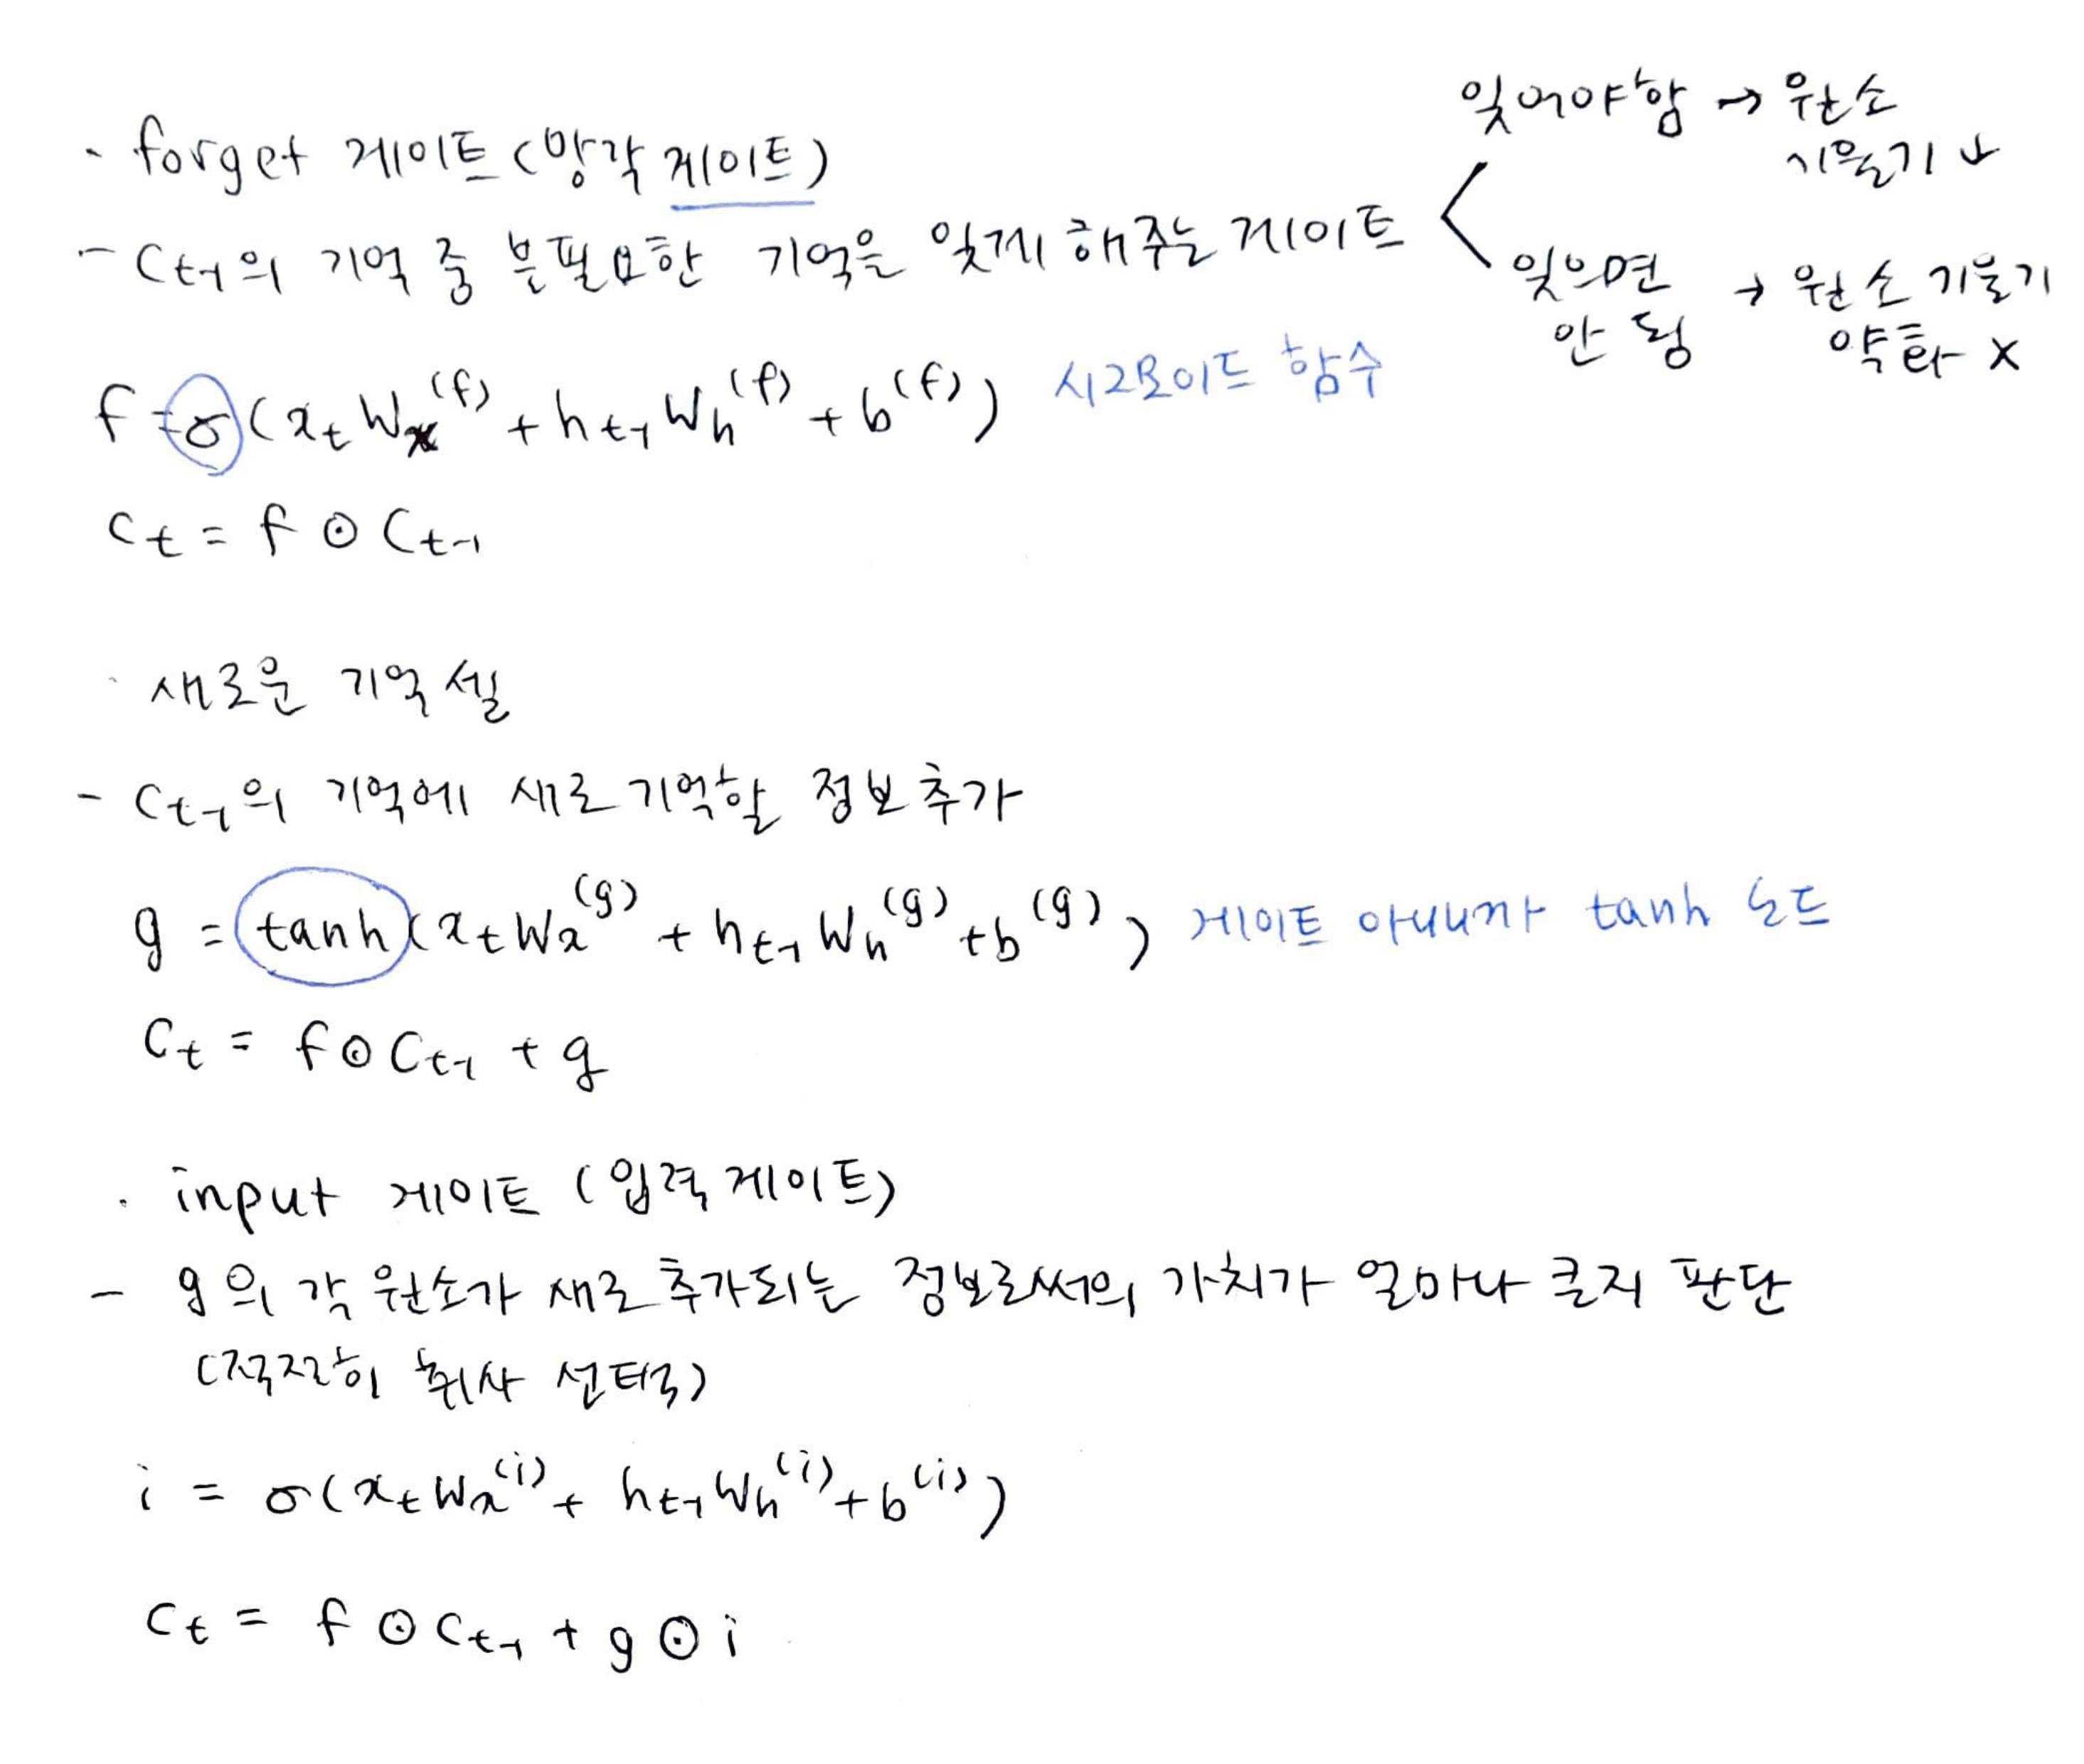 · forget 게이트 (망각 게이트)
- Ct-1의 기억 중 불필요한 기억을 잊게 해주는 게이트 <
잊어야함 → 원소
기울기 ↓
잊으면 → 원소 기울기
안 됨 약화 x
f = σ(xtWx^(f) + ht-1Wh^(f) + b^(f)) 시그모이드 함수
Ct = f ⊙ Ct-1
· 새로운 기억 셀
- Ct-1의 기억에 새로 기억할 정보 추가
g = tanh(xtWx^(g) + ht-1Wh^(g) + b^(g)) 게이트 아니니까 tanh 노드
Ct = f ⊙ Ct-1 + g
· input 게이트 (입력 게이트)
- g의 각 원소가 새로 추가되는 정보로써의 가치가 얼마나 큰지 판단
(적절히 취사 선택)
i = σ(xtWx^(i) + ht-1Wh^(i) + b^(i))
Ct = f ⊙ Ct-1 + g ⊙ i